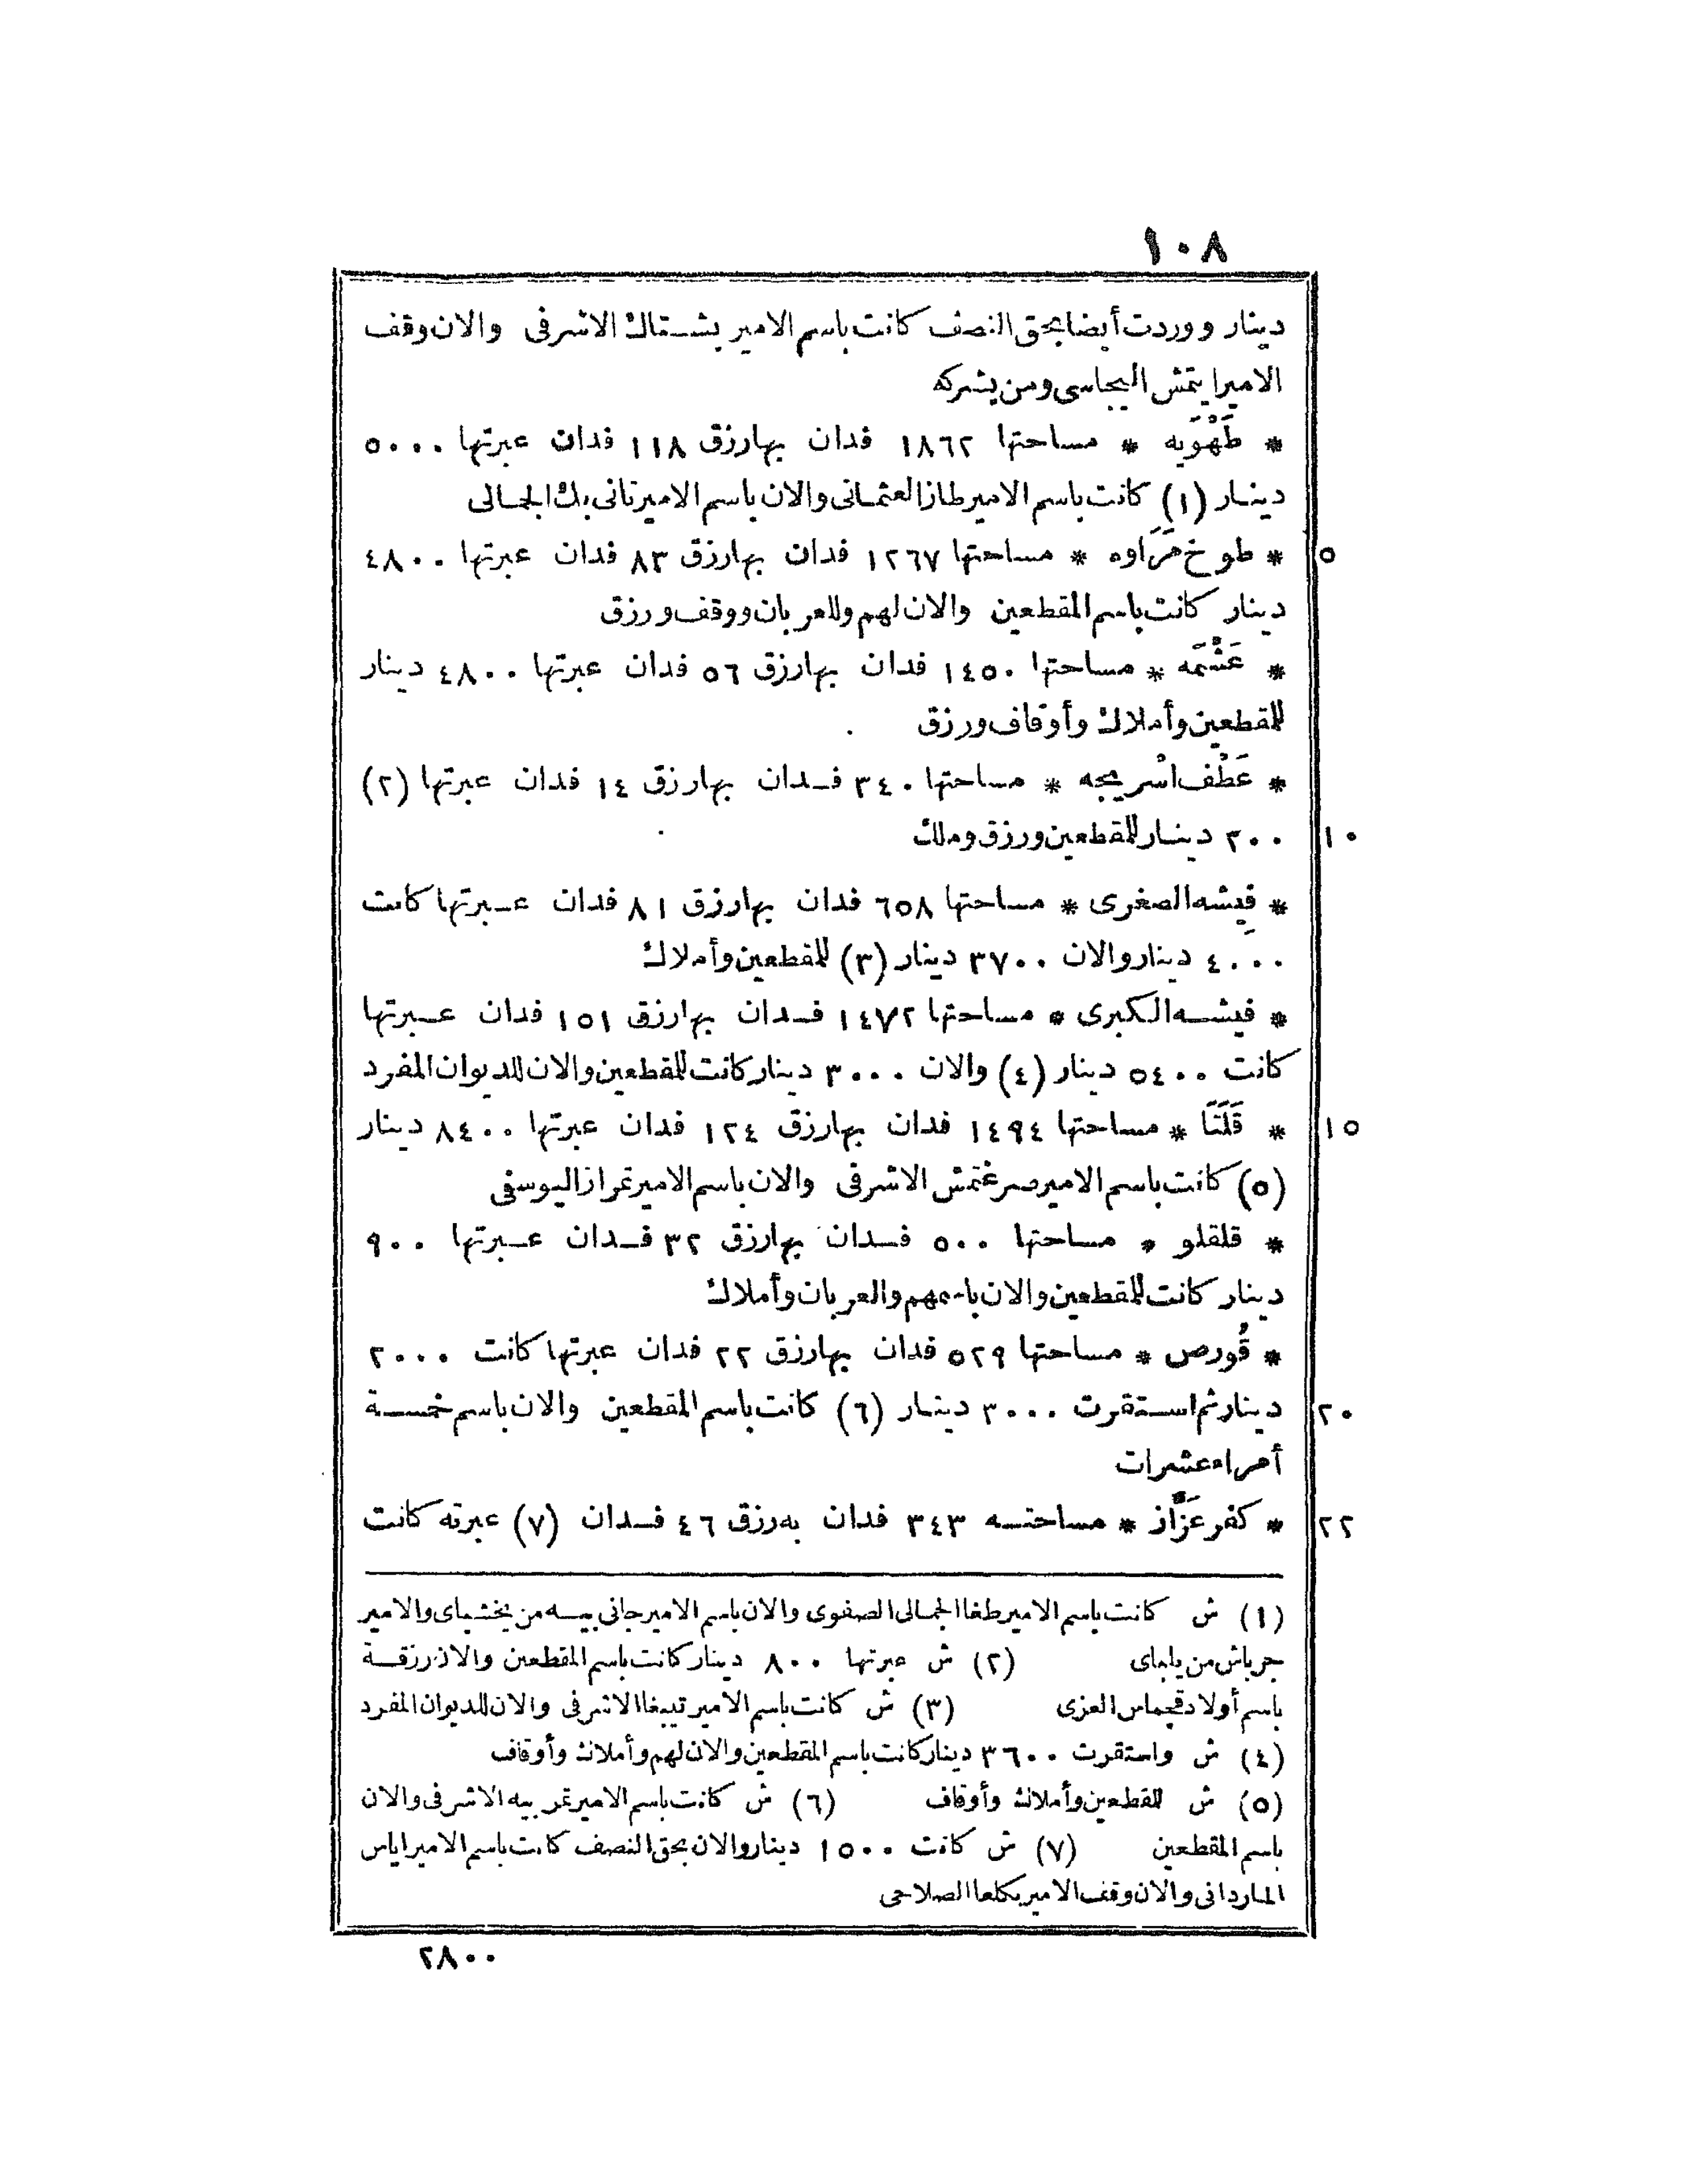 ١٠٨
دينار ووردت أيضا بحق النصف كانت باسم الامير بشـتاك الاشرفى والان وقف
الامير ايتمش البجاسى ومن يشركه
* طَهْوَيه * مساحتها ١٨٦٢ فدان بها رزق ١١٨ فدان عبرتها ٥٠٠٠
دينـار (١) كانت باسم الامير طاز العثمـانى والان باسم الامير تانى بك الجمـالى
٥ * طوخ مَزَاوه * مساحتها ١٢٦٧ فدان بها رزق ٨٣ فدان عبرتها ٤٨٠٠
دينار كانت باسم المقطعين والان لهم وللعربان ووقف ورزق
* عَشْمَه * مساحتها ١٤٥٠ فدان بها رزق ٥٦ فدان عبرتها ٤٨٠٠ دينار
للمقطعين وأملاك وأوقاف ورزق
* عَطْف اسْريجه * مساحتها ٣٤٠ فـدان بها رزق ١٤ فدان عبرتها (٢)
١٠ ٣٠٠ دينـار للمقطعين ورزق وملك
* فِيشه الصغرى * مساحتها ٦٥٨ فدان بها رزق ٨١ فدان عـبرتها كانت
٤٠٠٠ دينار والان ٣٧٠٠ دينار (٣) للمقطعين وأملاك
* فيشـه الكبرى * مساحتها ١٤٧٢ فـدان بها رزق ١٥١ فدان عـبرتها
كانت ٥٤٠٠ دينار (٤) والان ٣٠٠٠ دينار كانت للمقطعين والان للديوان المفرد
١٥ * قَلَتَا * مساحتها ١٤٩٤ فدان بها رزق ١٢٤ فدان عبرتها ٨٤٠٠ دينار
(٥) كانت باسم الامير صرغتمش الاشرفى والان باسم الامير تمراز اليوسفى
* قلقلو * مساحتها ٥٠٠ فـدان بها رزق ٣٢ فـدان عـبرتها ٩٠٠
دينار كانت للمقطعين والان باسمهم والعربان وأملاك
* قُورص * مساحتها ٥٢٩ فدان بها رزق ٢٢ فدان عبرتها كانت ٢٠٠٠
٢٠ دينار ثم استقرت ٣٠٠٠ دينـار (٦) كانت باسم المقطعين والان باسم خمسـة
أمراء عشرات
٢٢ * كفر عَزَّاز * مساحتـه ٣٤٣ فدان به رزق ٤٦ فـدان (٧) عبرته كانت
(١) ش كانت باسم الامير طغا الجمالى الصفوى والان باسم الامير جانى بيـه من يخشباى والامير
جرباش من يلباى (٢) ش عبرتها ٨٠٠ دينار كانت باسم المقطعين والان رزقـة
باسم أولاد قجماس العزى (٣) ش كانت باسم الامير تيبغا الاشرفى والان للديوان المفرد
(٤) ش واستقرت ٣٦٠٠ دينار كانت باسم المقطعين والان لهم وأملاك وأوقاف
(٥) ش للمقطعين وأملاك وأوقاف (٦) ش كانت باسم الامير تمر بيه الاشرفى والان
باسم المقطعين (٧) ش كانت ١٥٠٠ دينار والان بحق النصف كانت باسم الامير اياس
المـاردانى والان وقف الامير يكلعا الصلاحى
٢٨٠٠